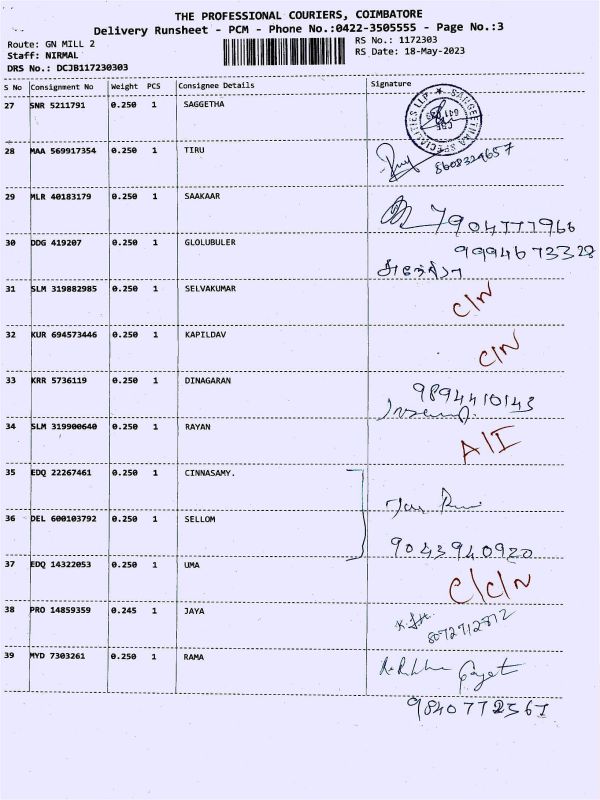 THE PROFESSIONAL COURIERS, COIMBATORE
Delivery Runsheet - PCM - Phone No.:0422-3505555 - Page No.:3
Route: GN MILL 2
RS No.: 1172303
Staff: NIRMAL
RS Date: 18-May-2023
DRS No.: DCJB117230303
S No Consignment No Weight PCS Consignee Details Signature
27 SNR 5211791 0.250 1 SAGGETHA
28 MAA 569917354 0.250 1 TIRU
8608324657
29 MLR 40183179 0.250 1 SAAKAAR
7904777966
30 DDG 419207 0.250 1 GLOLUBULER
9994673328
31 SLM 319882985 0.250 1 SELVAKUMAR C/N
32 KUR 694573446 0.250 1 KAPILDAV C/N
33 KRR 5736119 0.250 1 DINAGARAN
9894410143
34 SLM 319900640 0.250 1 RAYAN A/I
35 EDQ 22267461 0.250 1 CINNASAMY.
36 DEL 600103792 0.250 1 SELLOM
9043940920
37 EDQ 14322053 0.250 1 UMA C/C/N
38 PRO 14859359 0.245 1 JAYA
8072712872
39 MYD 7303261 0.250 1 RAMA
9840772567